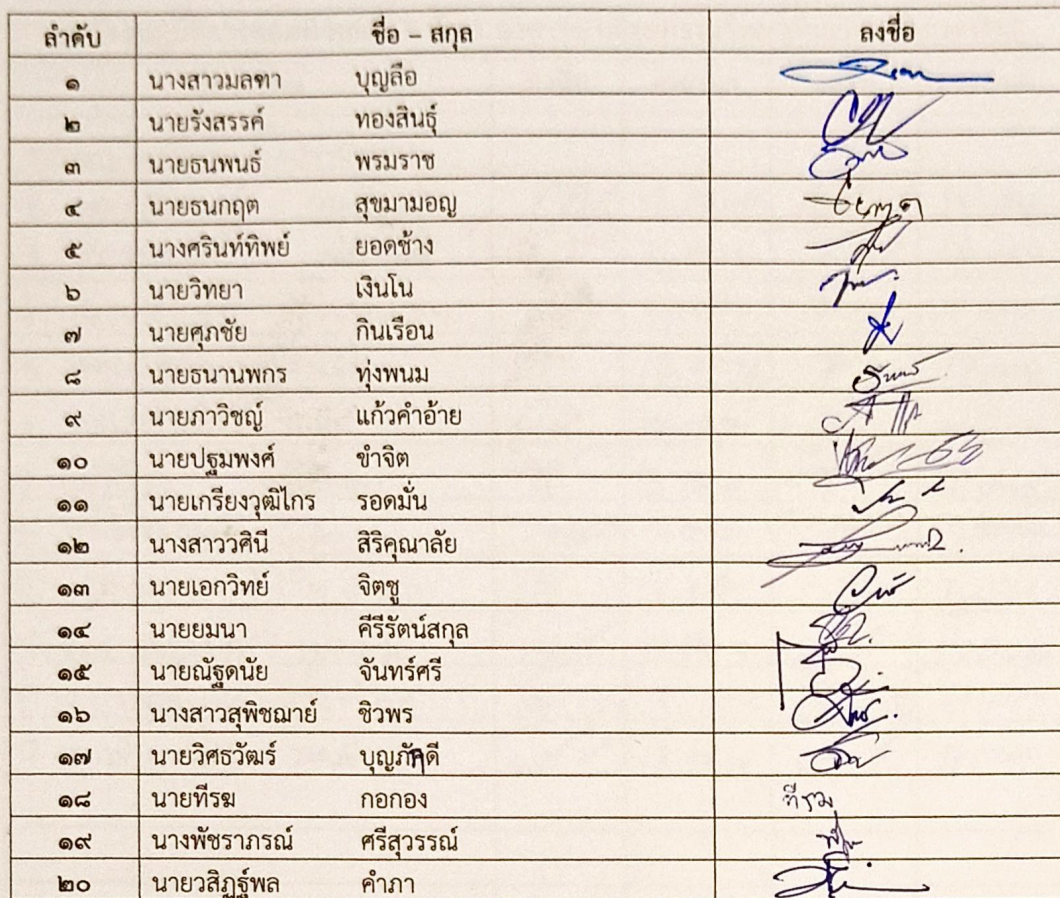 ลำดับ ชื่อ – สกุล ลงชื่อ
๑ นางสาวมลฑา บุญลือ
๒ นายรังสรรค์ ทองสินธุ์
๓ นายธนพนธ์ พรมราช
๔ นายธนกฤต สุขมามอญ
๕ นางศรินท์ทิพย์ ยอดช้าง
๖ นายวิทยา เงินโน
๗ นายศุภชัย กินเรือน
๘ นายธนานพกร ทุ่งพนม
๙ นายภาวิชญ์ แก้วคำอ้าย
๑๐ นายปฐมพงศ์ ขำจิต
๑๑ นายเกรียงวุฒิไกร รอดมั่น
๑๒ นางสาววศินี สิริคุณาลัย
๑๓ นายเอกวิทย์ จิตชู
๑๔ นายยมนา คีรีรัตน์สกุล
๑๕ นายณัฐดนัย จันทร์ศรี
๑๖ นางสาวสุพิชฌาย์ ชิวพร
๑๗ นายวิศธวัฒร์ บุญภักดี
๑๘ นายทีรฆ กอกอง ทีรฆ
๑๙ นางพัชราภรณ์ ศรีสุวรรณ์
๒๐ นายวสิฏฐ์พล คำภา